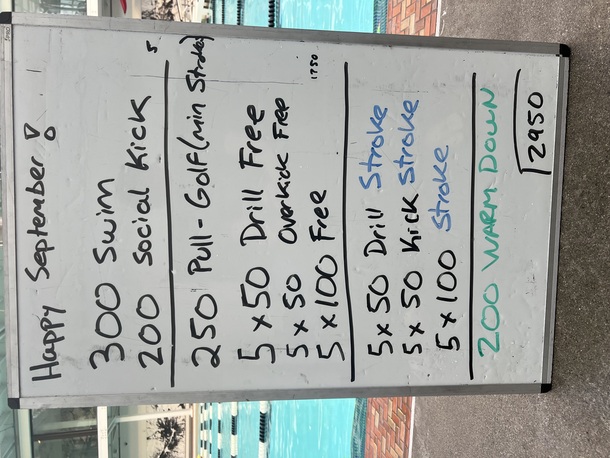 Happy September !
300 Swim
200 Social Kick
5
250 Pull - Golf (min Strokes)
5 x 50 Drill Free
5 x 50 Overkick Free
5 x 100 Free
1750
5 x 50 Drill Stroke
5 x 50 Kick Stroke
5 x 100 Stroke
200 WARM DOWN
2950